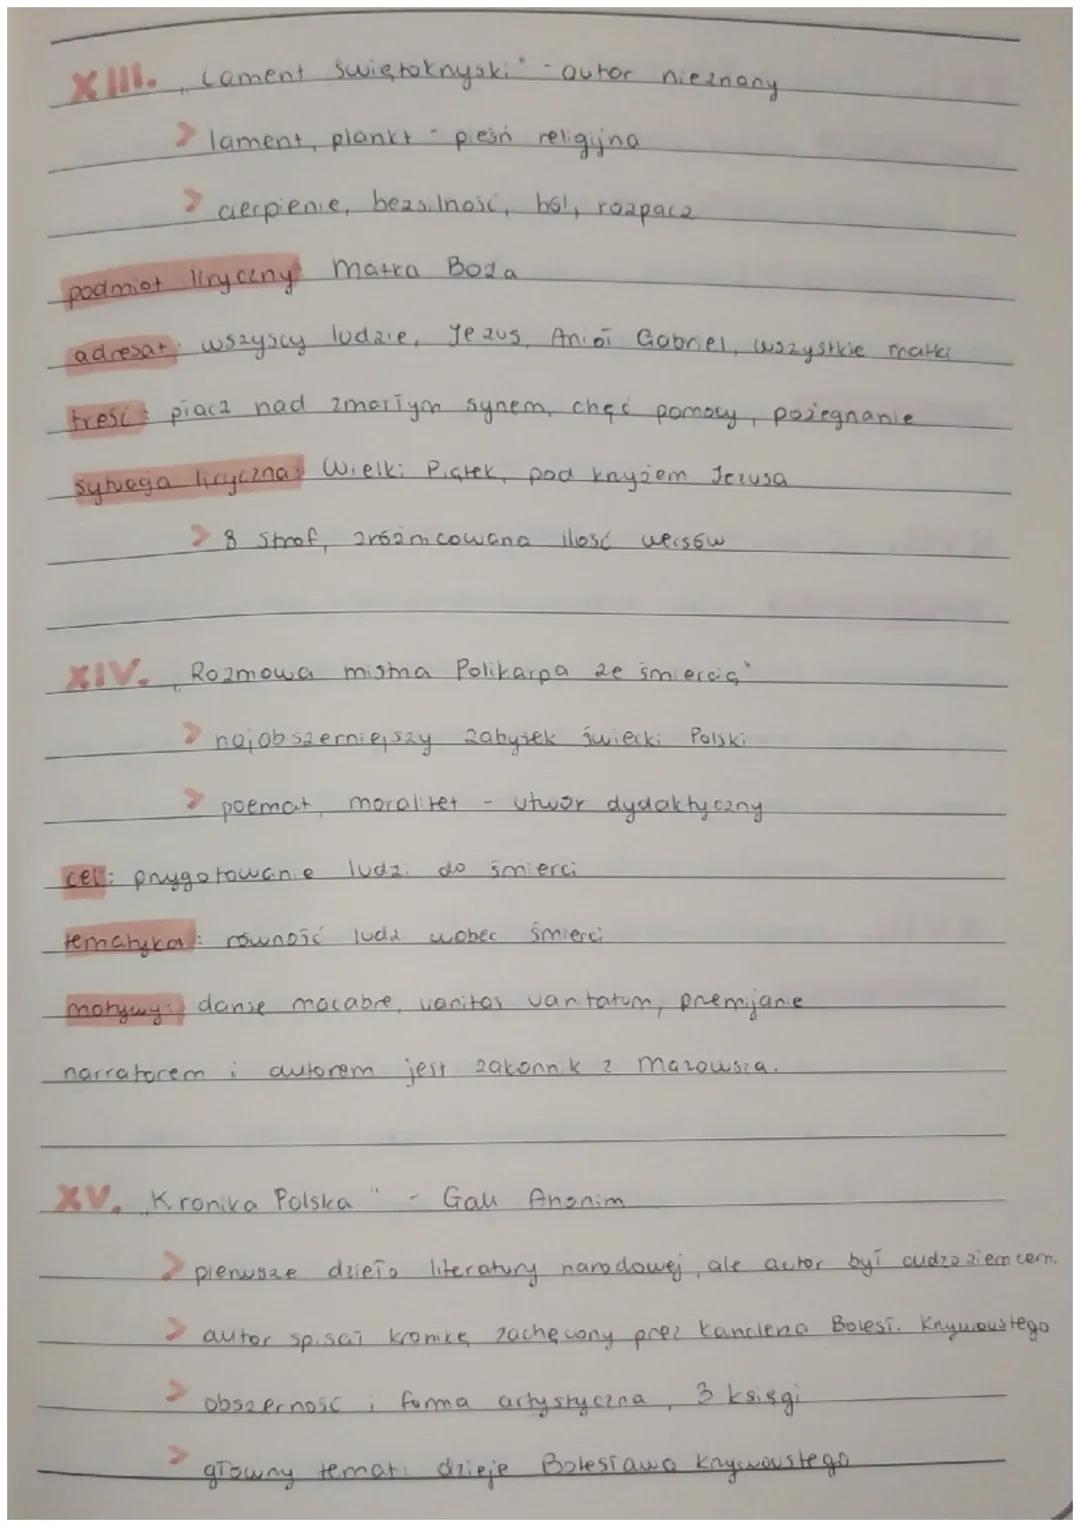 XIII. „Lament świętokrzyski" - autor nieznany
> lament, plankt - pieśń religijna
> cierpienie, bezsilność, ból, rozpacz
podmiot liryczny: Matka Boża
adresat: wszyscy ludzie, Jezus, Anioł Gabriel, wszystkie matki
treść: płacz nad zmarłym synem, chęć pomocy, pożegnanie
sytuacja liryczna: Wielki Piątek, pod krzyżem Jezusa
> 8 strof, zróżnicowana ilość wersów
XIV. „Rozmowa mistrza Polikarpa ze śmiercią"
> najobszerniejszy zabytek świecki Polski
> poemat, moralitet - utwór dydaktyczny
cel: przygotowanie ludzi do śmierci
tematyka: równość ludz wobec śmierci
motywy: danse macabre, vanitas vanitatum, przemijanie
narratorem i autorem jest zakonnik z Mazowsza.
XV. „Kronika Polska" - Gall Anonim
> pierwsze dzieło literatury narodowej, ale autor był cudzoziemcem.
> autor spisał kronikę zachęcony przez kanclerza Bolesł. Krzywoustego
> obszerność i forma artystyczna, 3 księgi
> główny temat: dzieje Bolesława Krzywoustego